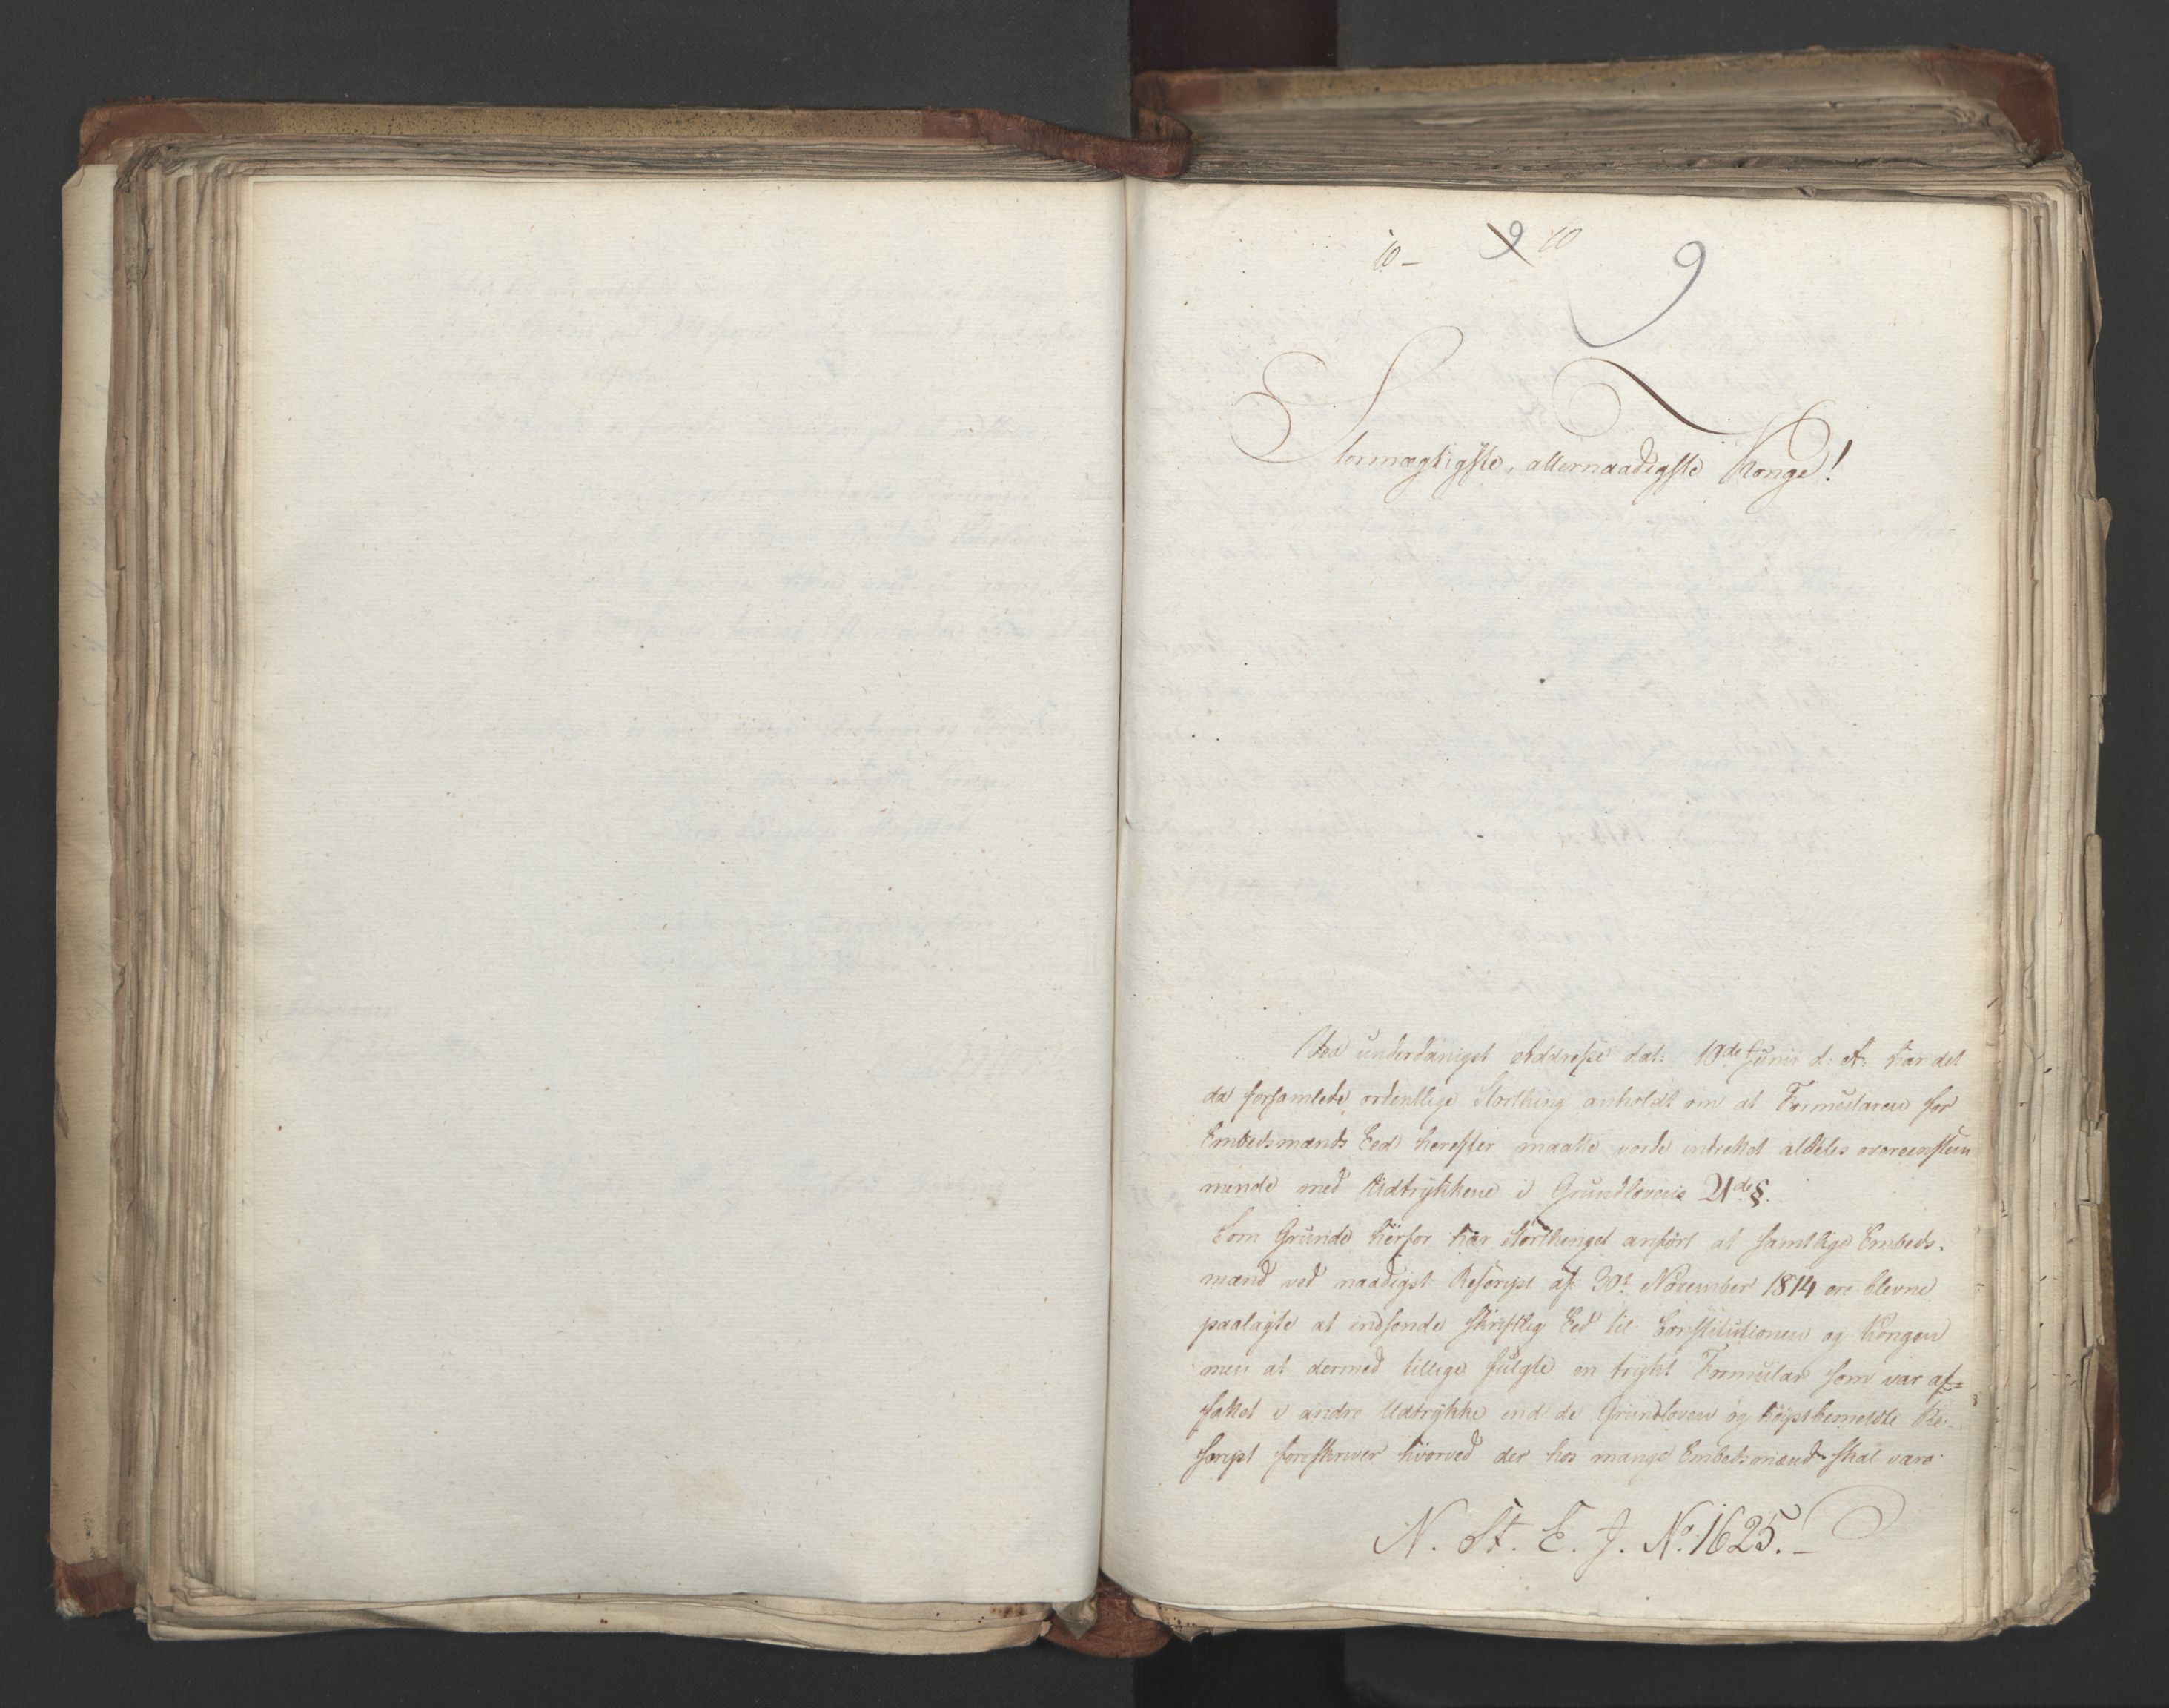 10 - 9 10
9
Stormægtigste, allernaadigste Konge!
Ved underdanigst Addresse dat: 10de Junii d: A: har det
da forsamlede ordentlige Storthing anholdt om at Formularen for
Embedsmænds Eed herefter maatte vorde indrettet aldeles overeenstem
mende med Udtrykkene i Grundlovens 21de §.
Som Grunde herfor har Storthinget anført at samtlige Embeds-
mænd ved naadigst Rescript af 30te November 1814 ere blevne
paalagte at indsende skriftlig Eed til Constitutionen og Kongen
men at dermed tillige fulgte en trykt Formular som var af=
fattet i andre Udtrykke end de Grundloven og høystbemeldte Re-
script foreskriver hvorved der hos mange Embedsmænd skal være
N. St. E. J. No. 1625. -